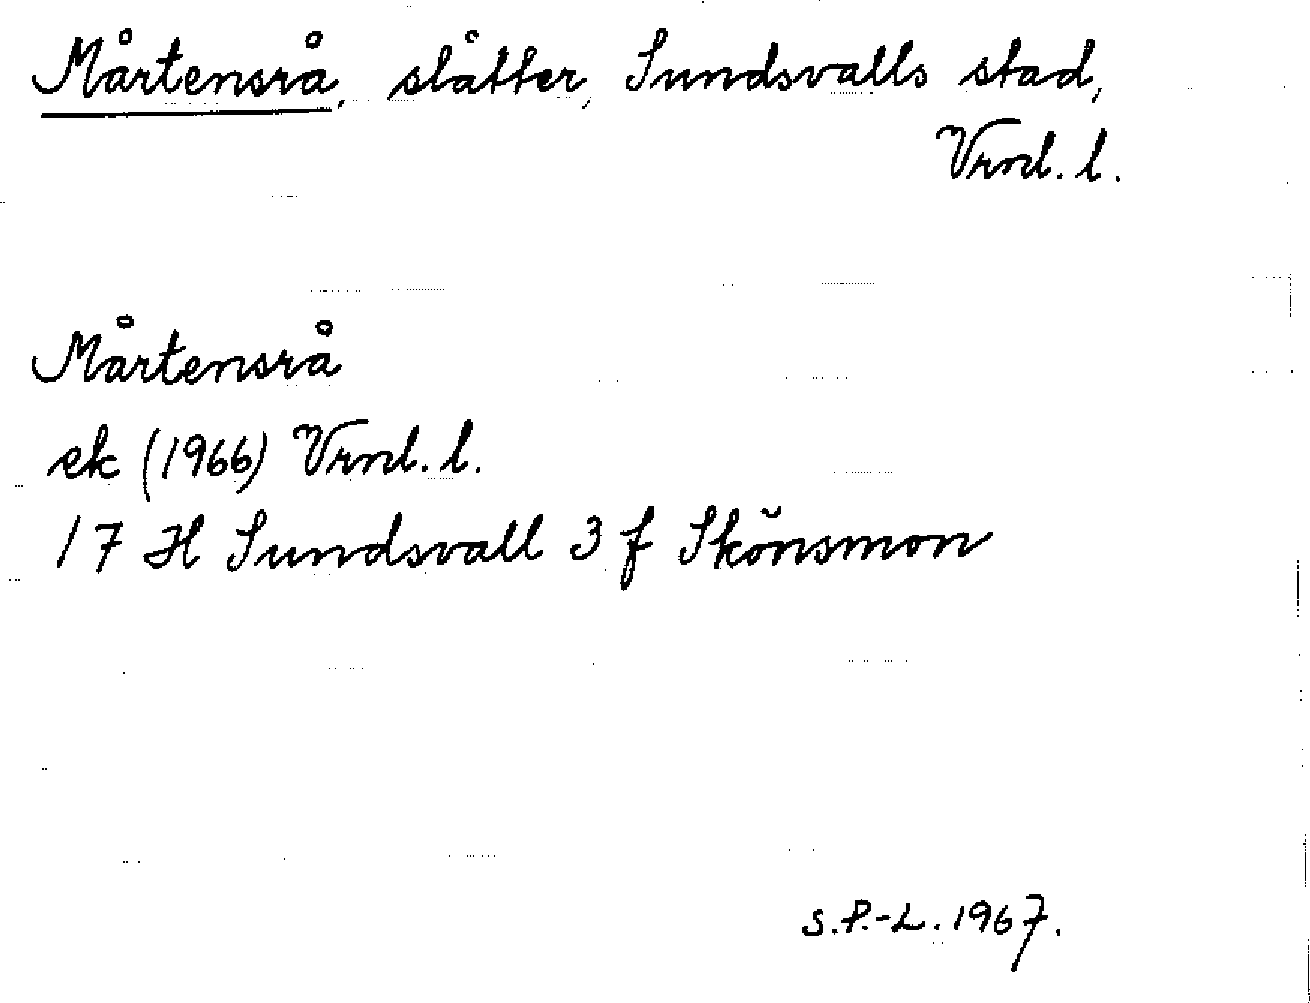 Mårtensrå, slåtter, Sundsvalls stad,
Vrnl. l.
Mårtensrå
ek (1966) Vrnl. l.
17 H Sundsvall 3 f Skönsmon
S.P.-L. 1967.